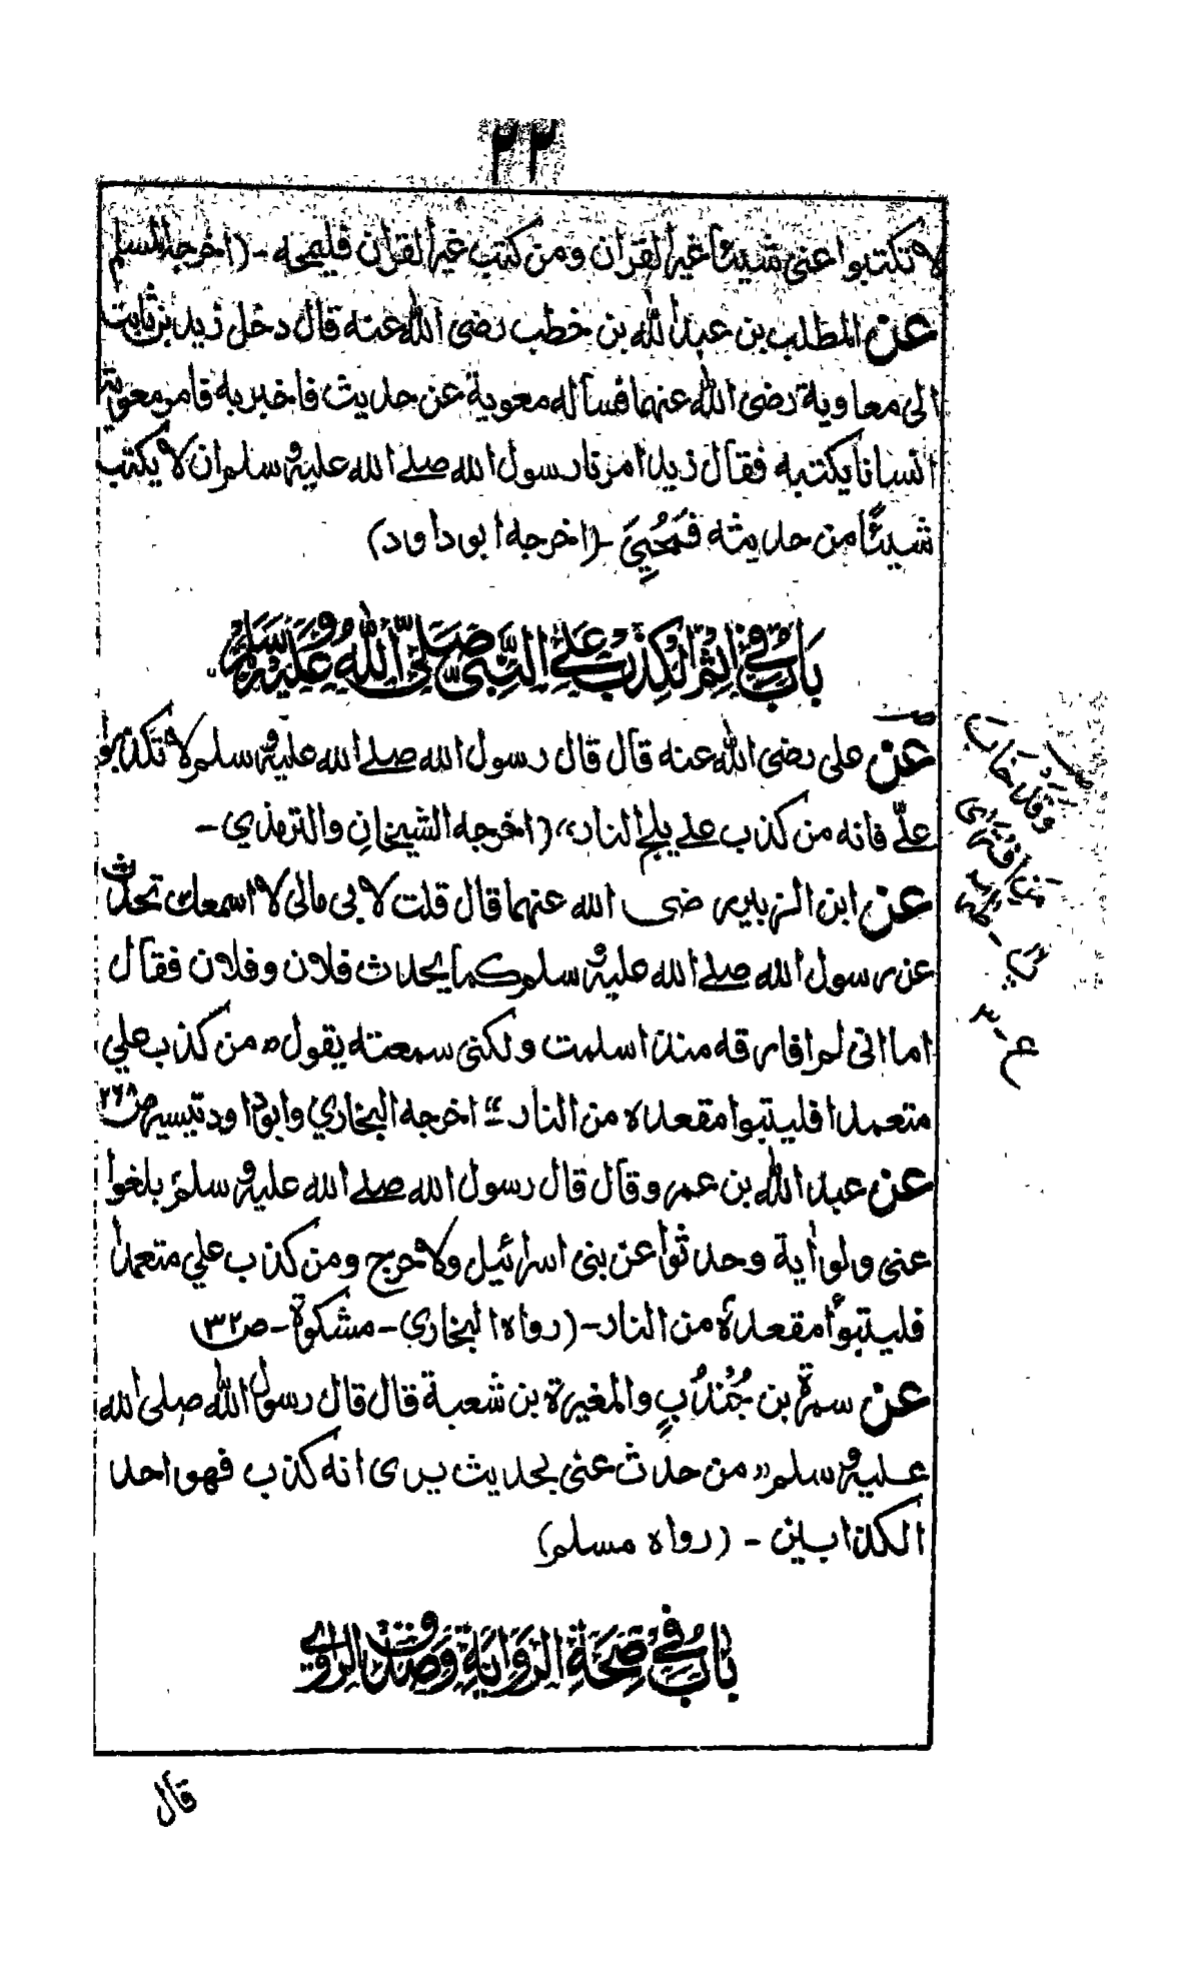 ٢٢
لا تكتبوا عنى شيئا غير القران ومن كتب غير القران فليمحه - (اخرجه المسلم
عن المطلب بن عبد الله بن خطب رضى الله عنه قال دخل زيد بن ثابت
الى معاوية رضى الله عنهما فسأله معوية عن حديث فاخبر به فامر معوية
انسانا يكتبه فقال زيد امرنا رسول الله صلے الله عليه وسلم ان لا يكتب
شيئًا من حديثه فَمُحِيَ - (اخرجه ابو داود)
بَابٌ فِي اِثْمِ الْكِذْبِ عَلَے النَّبِيِّ صَلَّى اللهُ عَلَيْهِ وَسَلَّمَ
عن على رضى الله عنه قال قال رسول الله صلے الله عليه وسلم لا تكذبوا
علىّ فانه من كذب علے يلج النار،، (اخرجه الشيخان والترمذي -
عن ابن الزبير رضى الله عنهما قال قلت لابى مالى لا اسمعك تحدث
عن رسول الله صلے الله عليه وسلم كما يحدث فلان وفلان فقال
اما انى لم افارقه منذ اسلمت ولكنى سمعته يقول " من كذب علي
متعمدا فليتبوا مقعده من النار " اخرجه البخاري وابو داود تيسير ص ٢٦٨
عن عبد الله بن عمر وقال قال رسول الله صلے الله عليه وسلم بلغوا
عنى ولو أية وحدثوا عن بنى اسرائيل ولا حرج ومن كذب علي متعمدا
فليتبوأ مقعدهٗ من النار - (رواه البخاري - مشكوة - ص ٣٢
عن سمرة بن جُنْدُبٍ والمغيرة بن شعبة قال قال رسول الله صلى الله
عليه وسلم " من حدث عنى بحديث يرى انه كذب فهو احد
الكذابين - (رواه مسلم)
بَابٌ فِي صِحَّةِ الرِّوَايَةِ وَصِدْقِ الرَّاوِي
وَقَدْ خَابَ
مَنِ افْتَرَى
طه
پ -
ع - ٣
قال